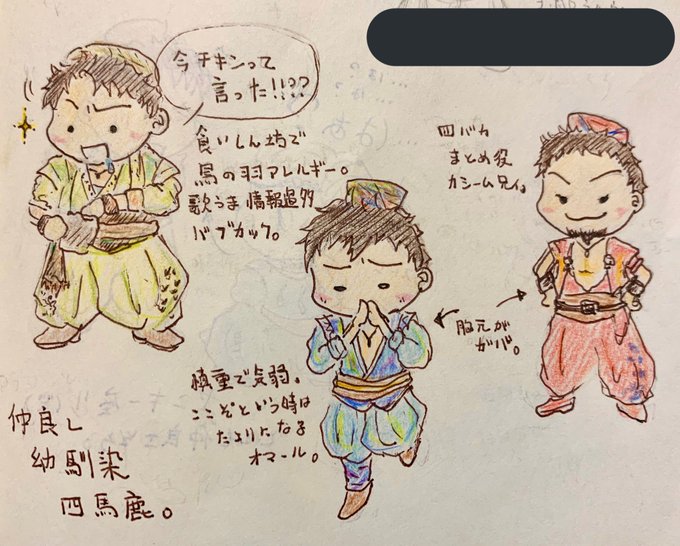 今チキンって
言った!!??
食いしん坊で
鳥の羽アレルギー。
歌うま情報過多
バブカック。
四バカ
まとめ役
カシーム兄ィ。
胸元が
ガバ。
慎重で気弱。
ここぞという時は
たよりになる
オマール。
仲良し
幼馴染
四馬鹿。